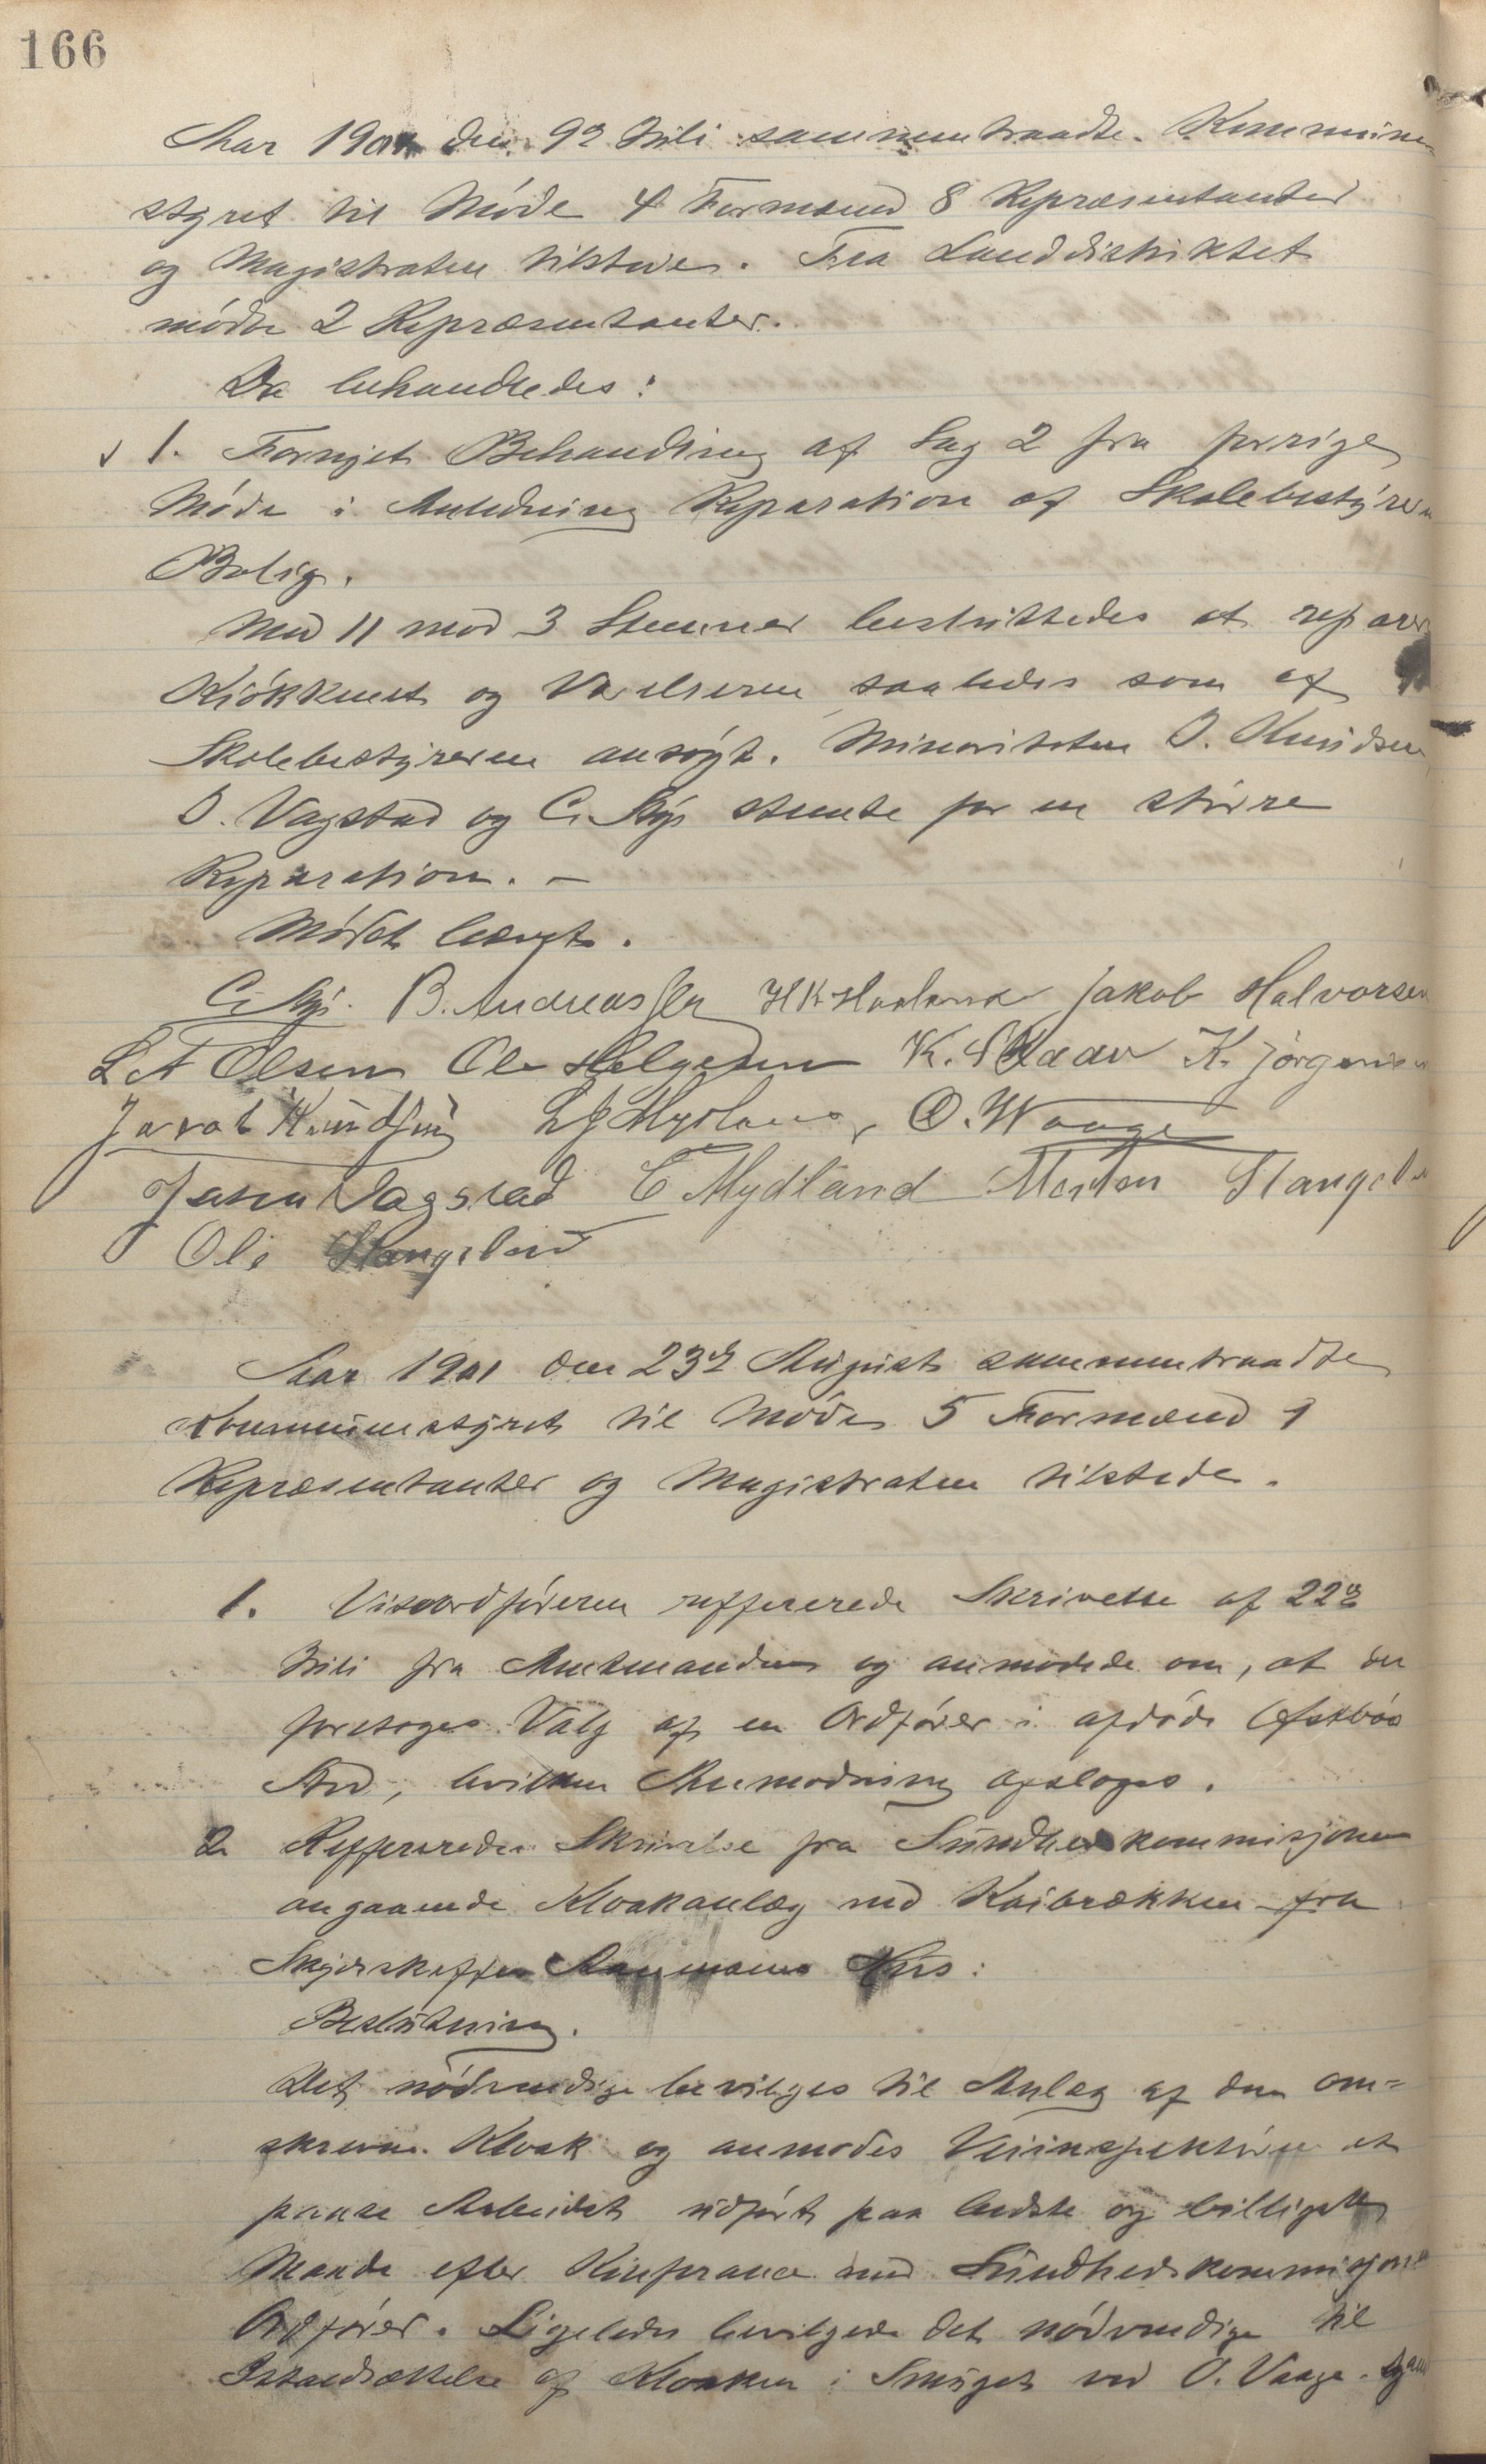 166
Aar 1901 den 9de Juli sammentraadte Kommune
styret til Møde 4 Formænd 8 Repræsentanter
og Magistraten tilstede. Fra Landdistriktet
mødte 2 Repræsentanter.
Da behandledes:
1. Fornyet Behandling af Sag 2 fra forrige
Møde i Anledning Reparation af Skolebestyreren
Bolig.
Med 11 mod 3 Stemmer besluttedes at reparer
Kjøkkenet og Værelserne saaledes som af
Skolebestyreren ansøgt. Minoriteten J. Knudsen
J. Vagstad og C. Ryg stemte for en større
Reparation. —
Mødet hævet.
B. Andreassen H K Haaland Jakob Halvorsen
L A Olsen Ole Helgesen K. Jørgensen
Jacob Knudsen O. Waage
Vagstad C Mydland Morten Stangeland
Ole Stangeland
Aar 1901 den 23de August sammentraadte
Kommunestyret til Møde 5 Formænd 9
Repræsentanter og Magistraten tilstede.
1. Viseordføreren reffererede Skrivelse af 22de
Juli fra Amtmanden og anmodede om, at der
foretages Valg af en Ordfører i afdøde Østbøs
Sted, hvilken Anmodning afsloges.
2 Reffereredes Skrivelse fra Sundhedskommisjonen
angaaende Kloakanlæg ved Kaibrækken fra
Skydsskaffer Aanmans Hus:
Beslutning.
Det nødvendige bevilges til Anlæg af den om=
skrevne Kloak og anmodes Veiinspektøren at
faa Arbeidet udført paa bedste og billigste
Maade efter Konferance med Sundhedskommisjonens
Ordfører. Ligeledes bevilgede det nødvendige til
Istandsættelse af Kloaken i Smuget ved O. Vaage